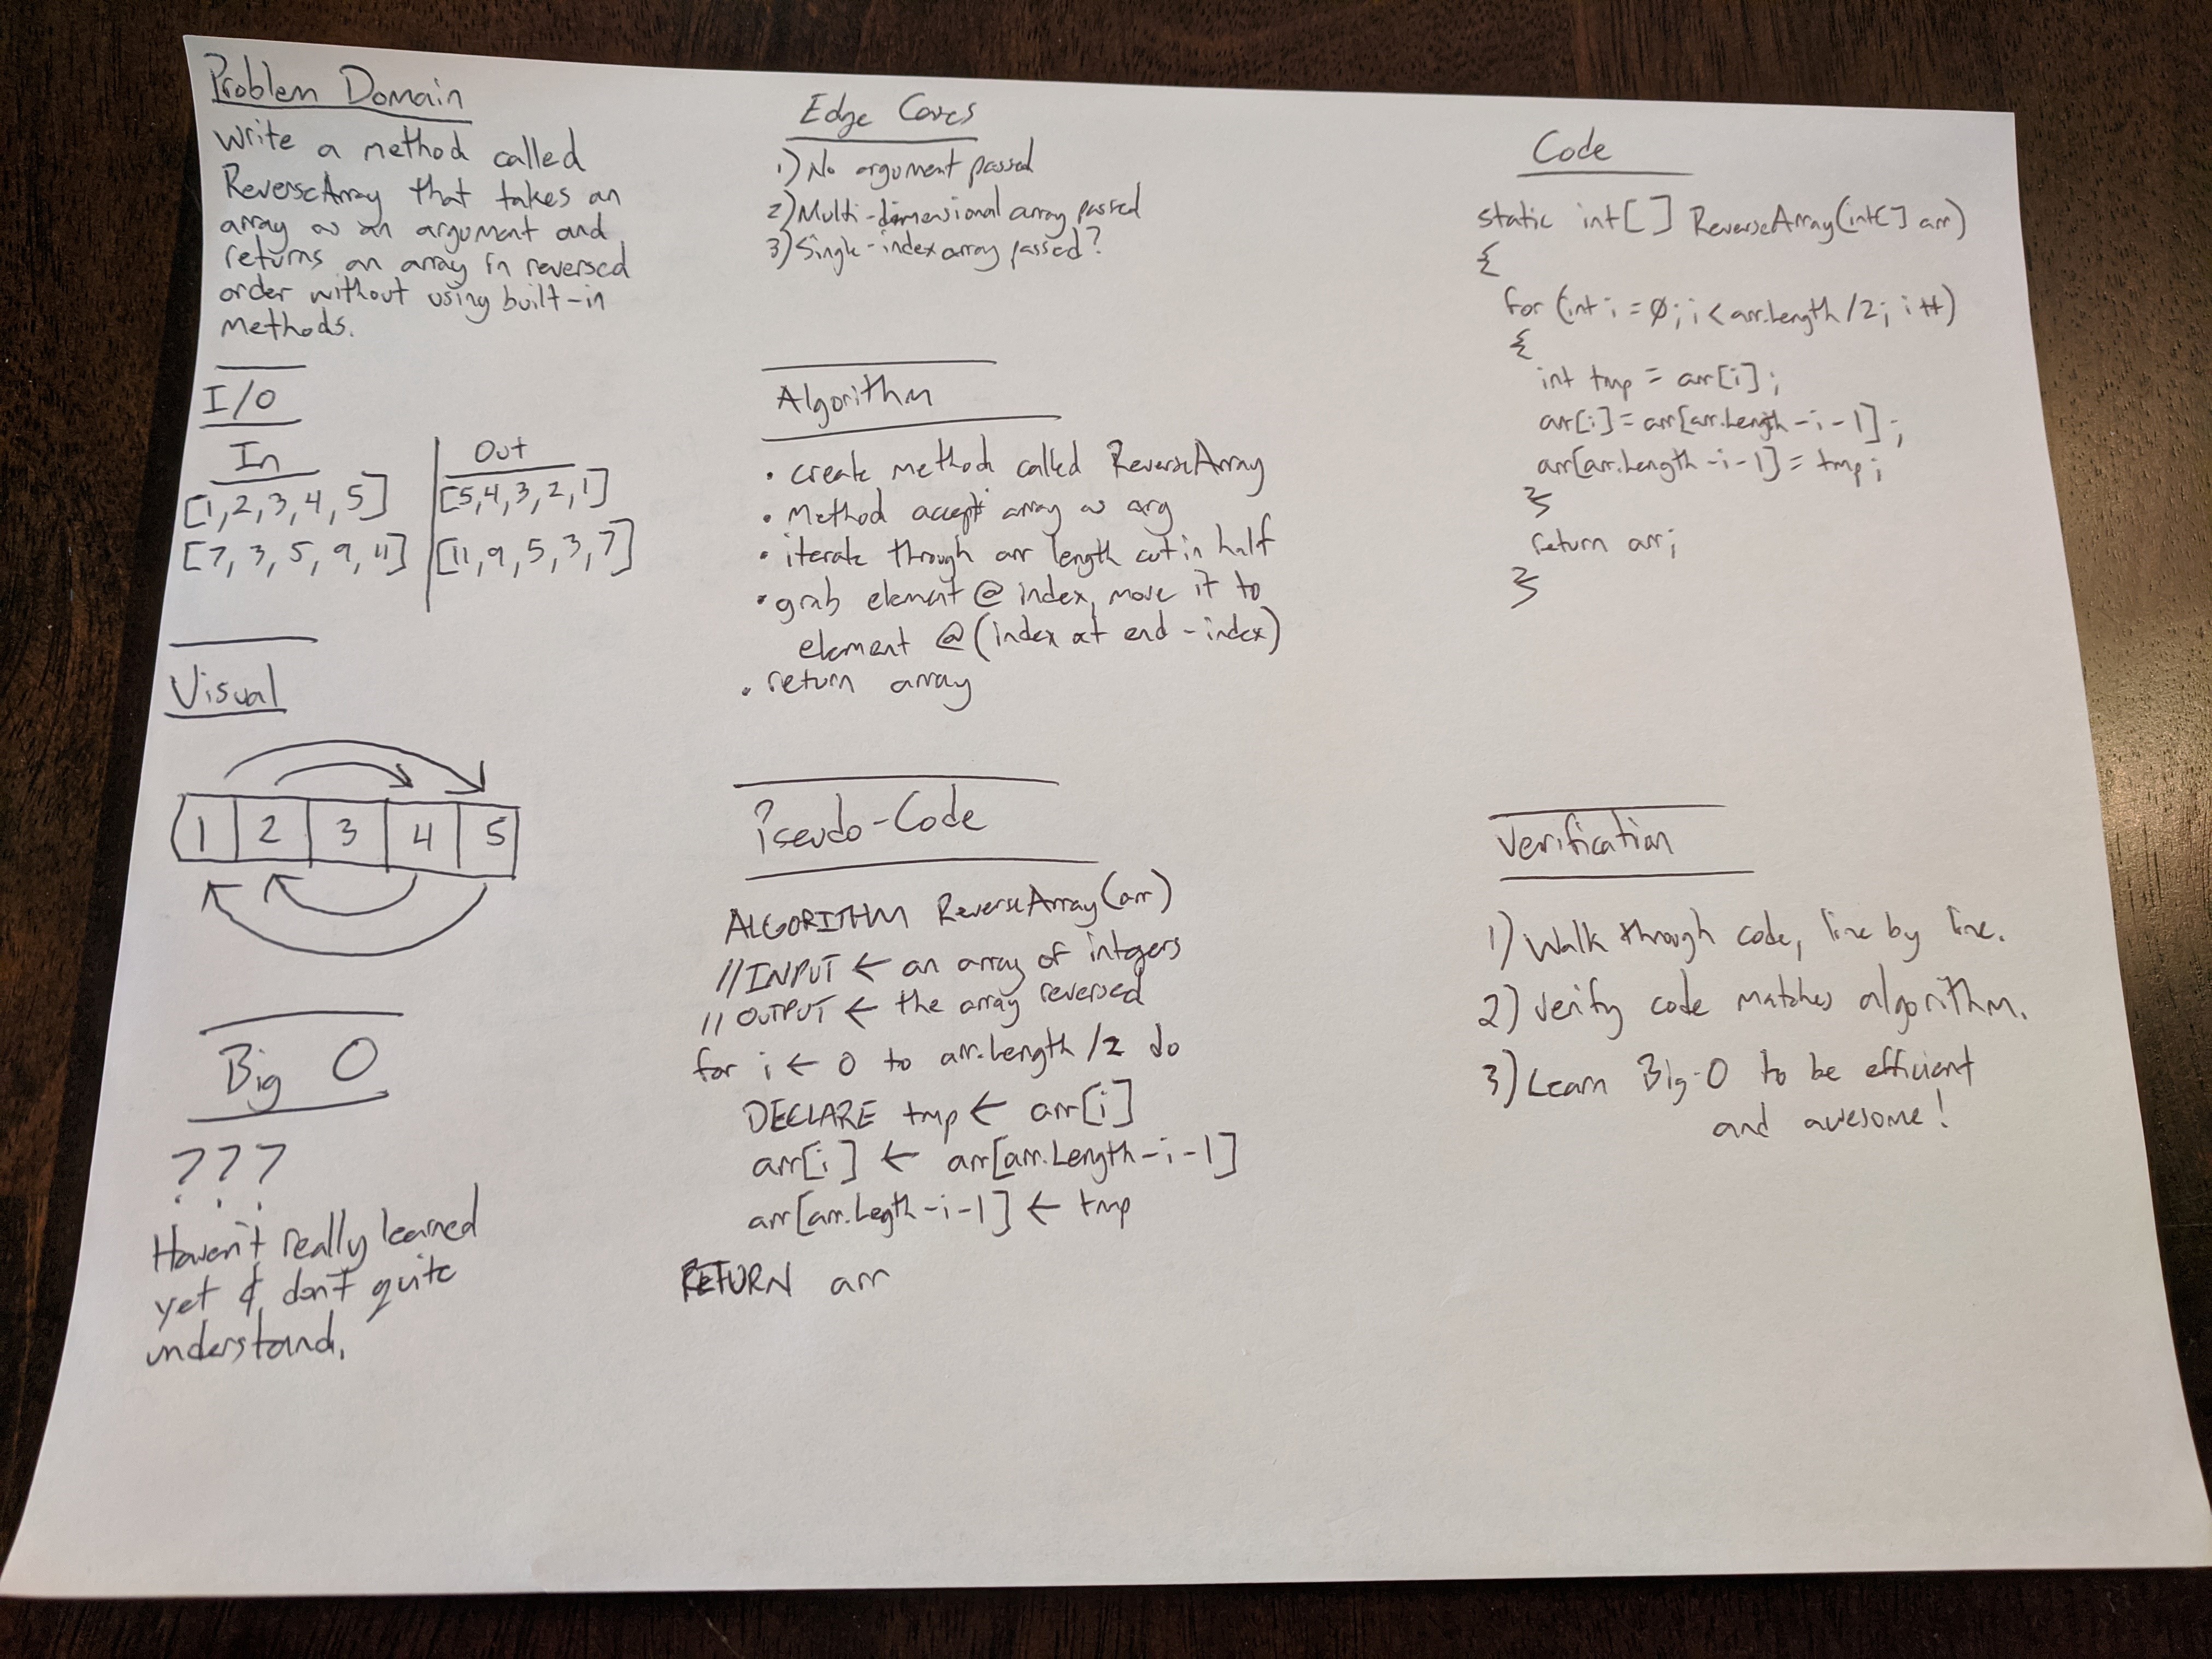 Problem Domain
Write a method called
ReverseArray that takes an
array as an argument and
returns an array in reversed
order without using built-in
methods.
I/O
In
Out
[1,2,3,4,5]
[5,4,3,2,1]
[7,3,5,9,11]
[11,9,5,3,7]
Visual
1 2 3 4 5
Big O
???
Haven't really learned
yet & don't quite
understand.
Edge Cases
1) No argument passed
2) Multi-dimensional array passed
3) Single-index array passed?
Algorithm
• create method called ReverseArray
• Method accept array as arg
• iterate through arr length cut in half
• grab element @ index, move it to
element @ (index at end - index)
• return array
Pseudo-Code
ALGORITHM ReverseArray(arr)
//INPUT ← an array of integers
// OUTPUT ← the array reversed
for i ← 0 to arr.Length/2 do
DECLARE tmp ← arr[i]
arr[i] ← arr[arr.Length-i-1]
arr[arr.Legth-i-1] ← tmp
RETURN arr
Code
static int[] ReverseArray(int[] arr)
{
for (int i = 0; i < arr.Length/2; i++)
{
int tmp = arr[i];
arr[i] = arr[arr.Length-i-1];
arr[arr.Length-i-1] = tmp;
}
return arr;
}
Verification
1) Walk through code, line by line.
2) Verify code matches algorithm.
3) Learn Big-O to be efficient
and awesome!